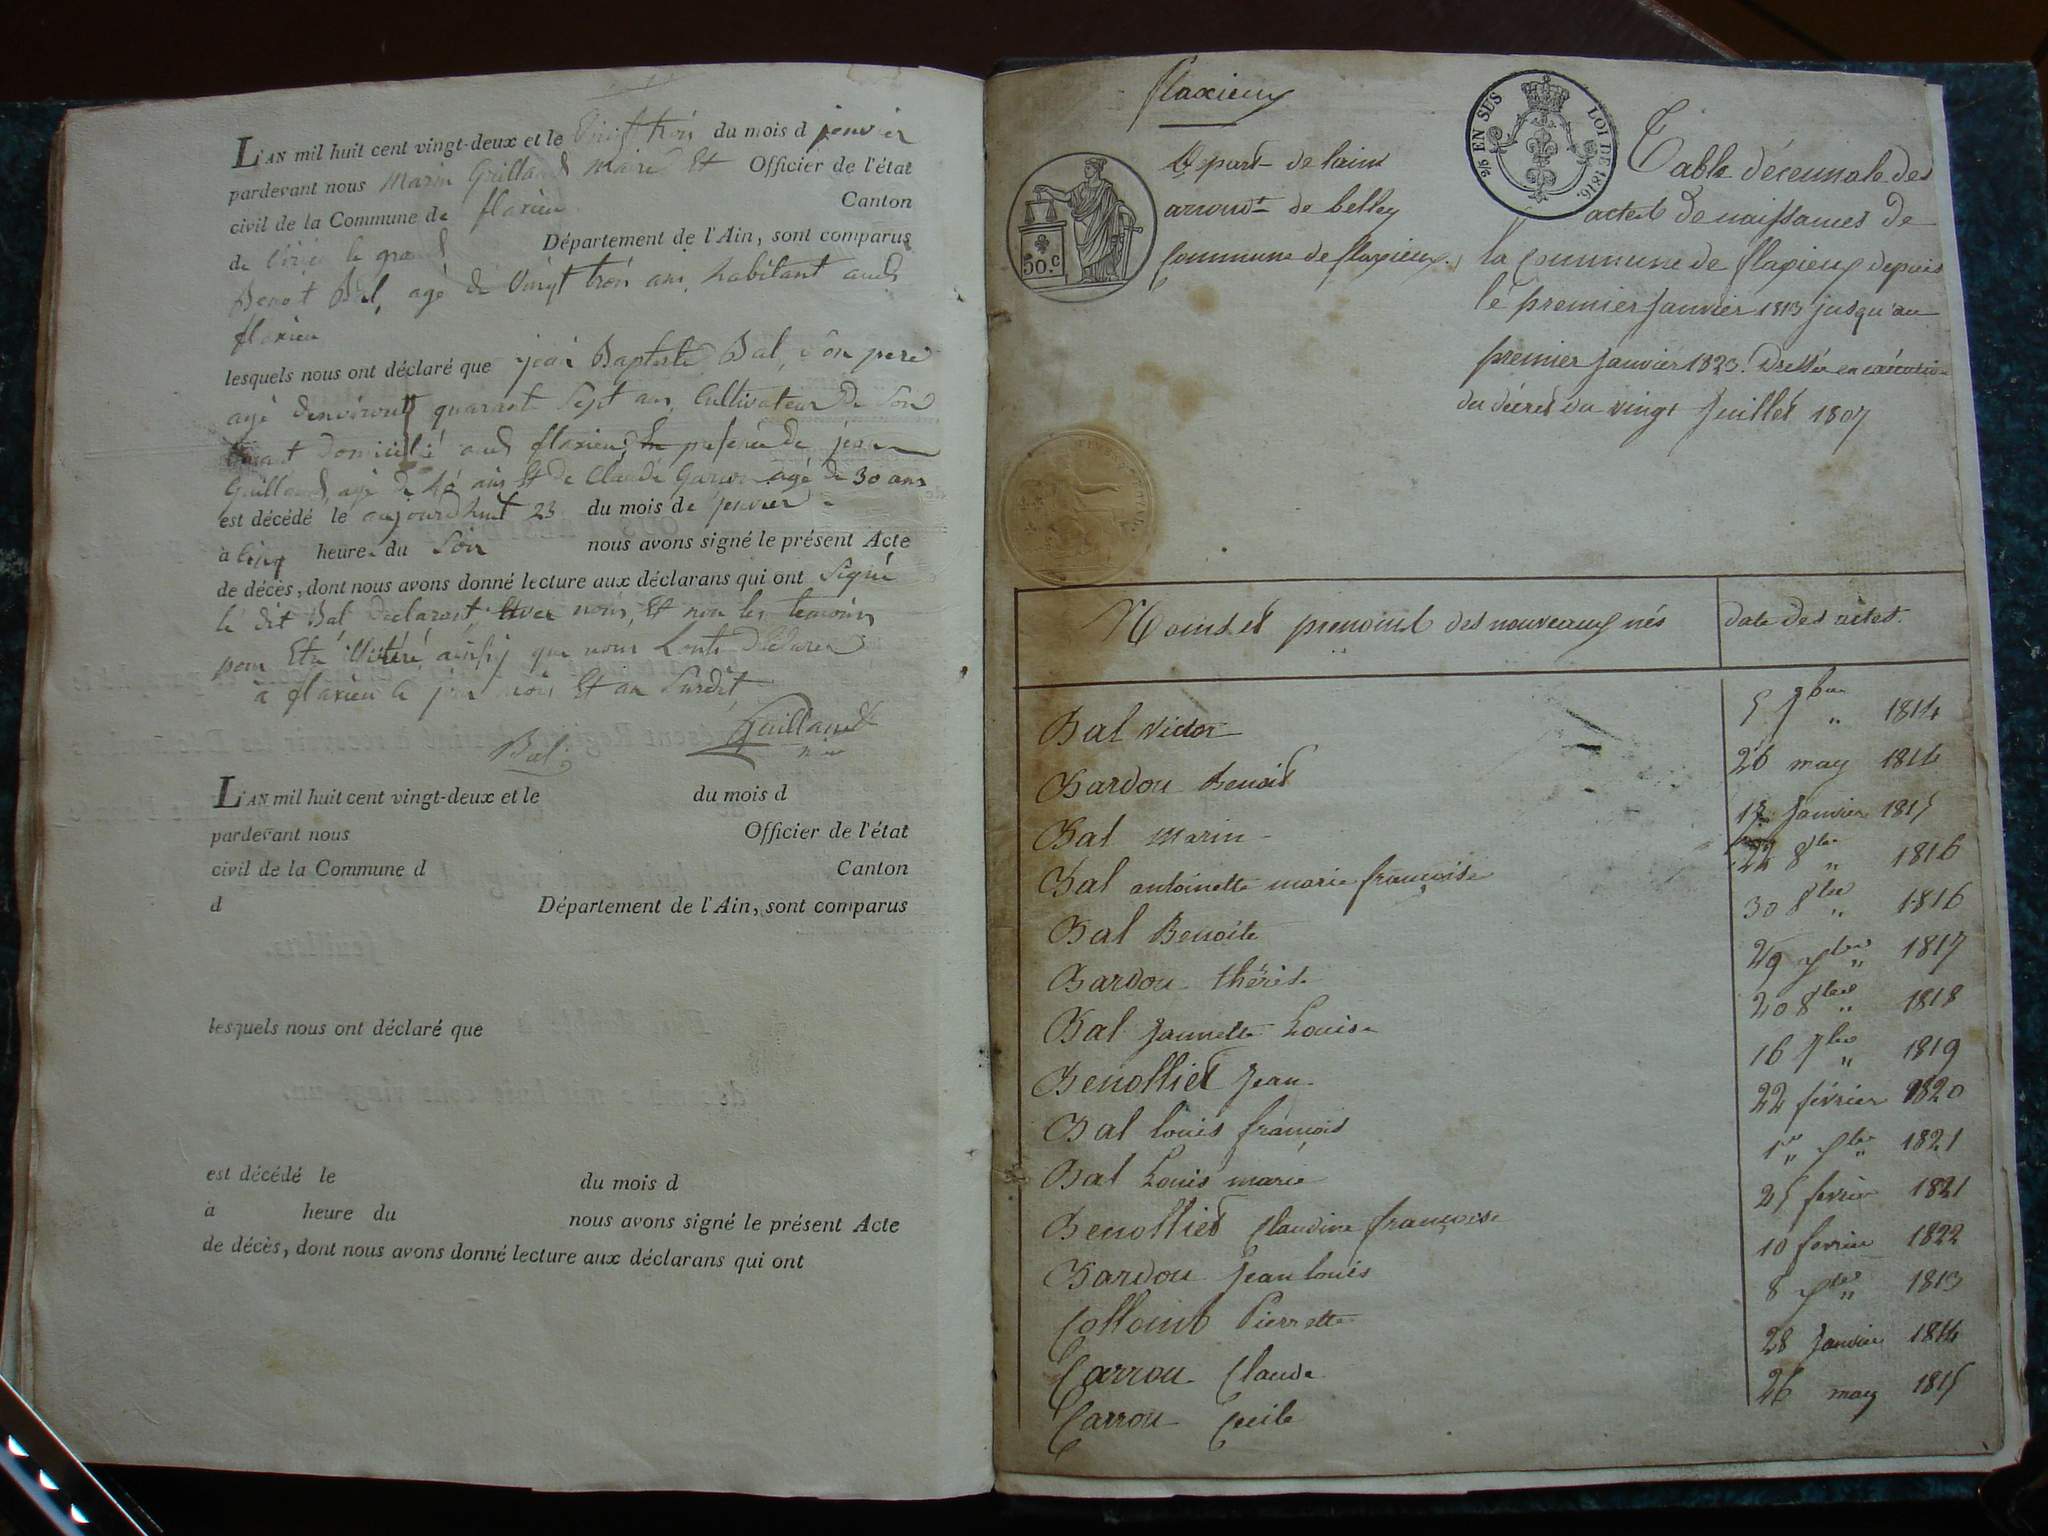 L'AN mil huit cent vingt-deux et le vingt trois du mois d janvier
pardevant nous marin Guilland maire Et Officier de l'état
civil de la Commune de flaxieu Canton
de virieu le grand Département de l'Ain, sont comparus
Benoit Bal, agé de vingt trois ans, habitant aud
flaxieu
lesquels nous ont déclaré que jean Baptiste Bal, son pere
agé denviront quarante Sept ans, Cultivateur De Son
vivant Domicilié aud flaxieu, En presence de jean
Guilland, agé de ans Et De Claude agé de 30 ans
est décédé le aujourdhuit 23 du mois de janvier
à cinq heure du Soir nous avons signé le présent Acte
de décès, dont nous avons donné lecture aux déclarans qui ont Signé
le dit Bal Declarant, avec nous, Et non les temoins
pour Etre illiteré, ainsy que nous Lonts Déclarer
à flaxieu le jour mois Et an Susdit
Bal Guilland
L'AN mil huit cent vingt-deux et le du mois d
pardevant nous Officier de l'état
civil de la Commune d Canton
d Département de l'Ain, sont comparus
lesquels nous ont déclaré que
est décédé le du mois d
à heure du nous avons signé le présent Acte
de décès, dont nous avons donné lecture aux déclarans qui ont
flaxieux
Depart de lain
arrond.t de belley
Commune de flaxieux
50.c
EN SUS LOI DE 1816.
Table décennale des
actes de naissances de
la Commune de flaxieux depuis
le premier Janvier 1813 jusqu'au
premier Janvier 1823. Dressée en exécution
du décret du vingt Juillet 1807
Noms et prenoms des nouveaux nés date des actes
Bal Victor 5 9bre 1814
Bardou Benoit 26 may 1814
Bal Marin 1815 Janvier
Bal antoinette marie françoise 22 8bre 1816
Bal Benoite 30 8bre 1816
Bardou thérèse 29 1817
Bal Jannette Louise 20 8bre 1818
Benolliet Jean 16 1819
Bal louis françois 22 février 1820
Bal Louis marie 1er 1821
Benolliet Claudine françoise 25 fevrier 1821
Bardou Jean louis 10 fevrier 1822
Collomb Pierrette 8 1813
Carrou Claude 28 Janvier 1814
Carrou Cecile 26 may 1815